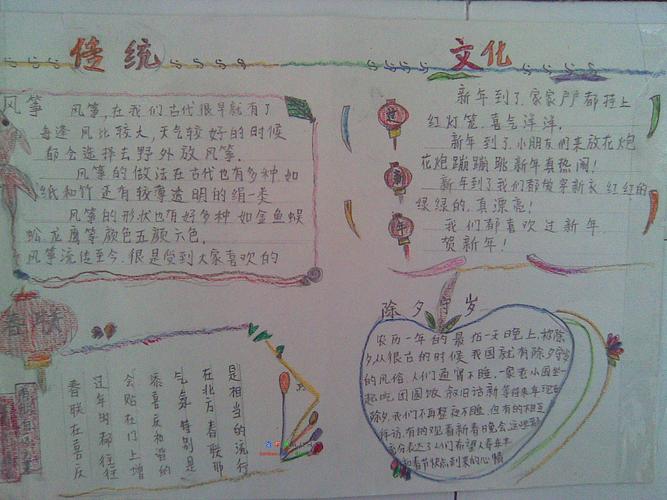 传统 文化
风筝
风筝,在我们古代很早就有了
每逢风比较大,天气较好的时候
都会选择去野外放风筝。
风筝的做法在古代也有多种如
纸和竹还有较薄透明的绢一类
风筝的形状也有好多种如金鱼蜈
蚣,龙鹰等颜色五颜六色。
风筝流传至今,很是受到大家喜欢的
新年到了,家家户户都挂上
红灯笼,喜气洋洋。
新年到了,小朋友们来放花炮
花炮蹦蹦跳新年真热闹!
新年到了我们都做穿新衣红红的
绿绿的,真漂亮!
我们都喜欢过新年
贺新年!
贺
新
年
春联
春联在喜庆
过年时都往往
会贴在门上增
添喜庆和谐的
气氛特别是
在北方春联那
是相当的流行
除夕守岁
农历一年的最后一天晚上,被称
夕从很古的时候,我国就有除夕守岁
的风俗,人们通宵不睡,一家老小团坐一
起吃团圆饭,叙旧话新等待来年现在
除夕,我们不再整夜不睡,但有的相互
拜访,有的观看新春晚会这些都
充分表达了人们希望人寿年丰
和春节快点到来的心情